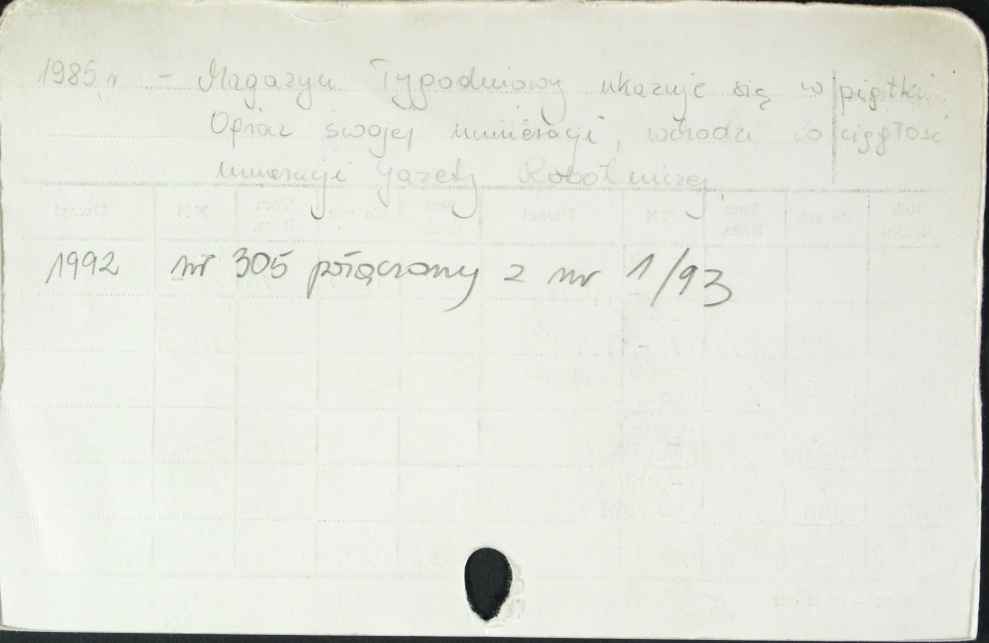 1985 r. - Magazyn Tygodniowy ukazuje się w piątki.
Oprócz swojej numeracji, wchodzi w ciągłość
numeracji Gazety Robotniczej.
1992 nr 305 połączony z nr 1/93